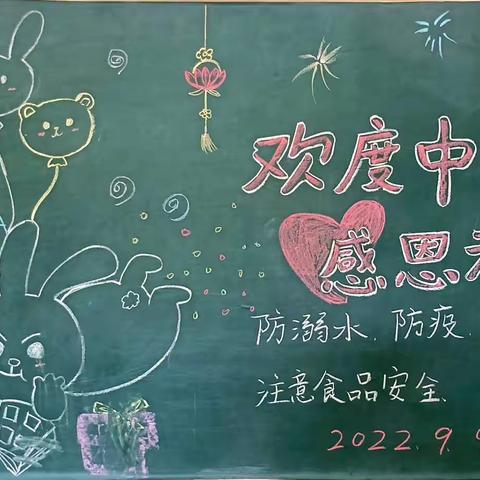 欢度中
感恩
防溺水、防疫、
注意食品安全、
2022.9.